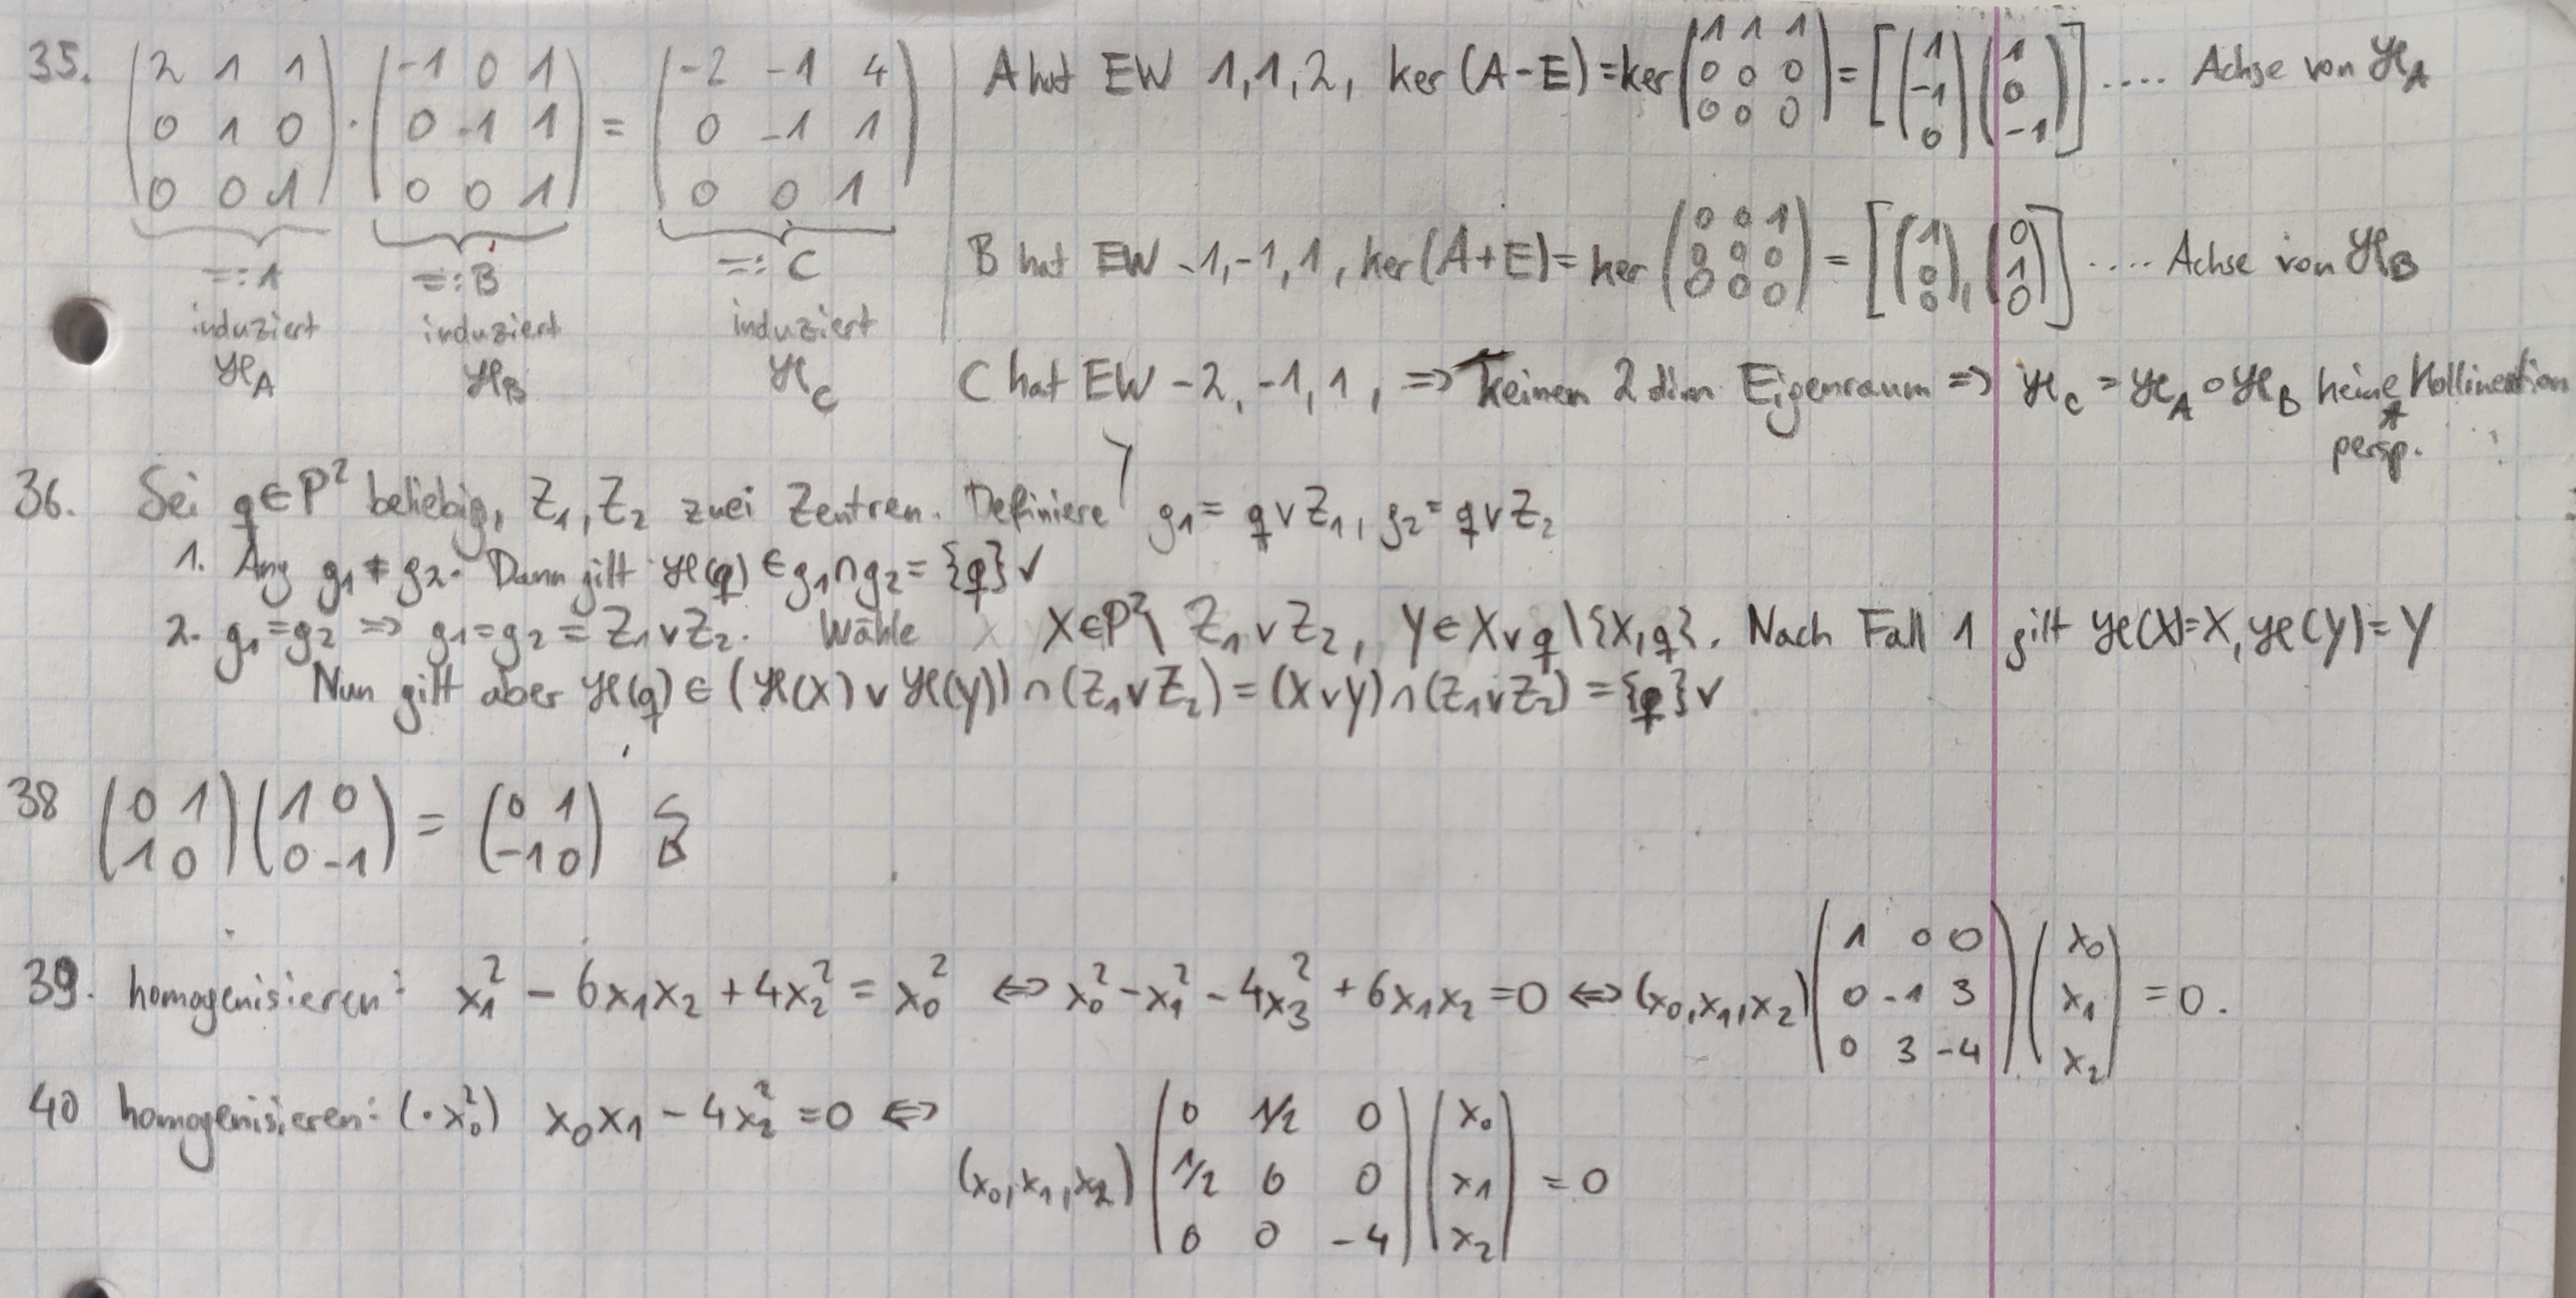 35. (2 1 1; 0 1 0; 0 0 1) · (-1 0 1; 0 -1 1; 0 0 1) = (-2 -1 4; 0 -1 1; 0 0 1)
=: A =: B =: C
induziert induziert induziert
ℋ_A ℋ_B ℋ_C
A hat EW 1,1,2, ker (A-E) = ker (1 1 1; 0 0 0; 0 0 0) = [(1; -1; 0) (1; 0; -1)] .... Achse von ℋ_A
B hat EW -1,-1,1, ker (A+E) = ker (0 0 1; 0 0 0; 0 0 0) = [(1; 0; 0), (0; 1; 0)] .... Achse von ℋ_B
C hat EW -2, -1, 1, ⇒ keinen 2 dim Eigenraum ⇒ ℋ_C = ℋ_A ∘ ℋ_B keine Kollineation
persp.
36. Sei q ∈ P² beliebig, Z₁, Z₂ zwei Zentren. Definiere g₁ = q ∨ Z₁, g₂ = q ∨ Z₂
1. Ang g₁ ≠ g₂. Dann gilt ℋ(q) ∈ g₁ ∩ g₂ = {q} ✓
2. g₁ = g₂ ⇒ g₁ = g₂ = Z₁ ∨ Z₂. Wähle X ∈ P² \ Z₁ ∨ Z₂, Y ∈ X ∨ q \ {X, q}. Nach Fall 1 gilt ℋ(X) = X, ℋ(Y) = Y
Nun gilt aber ℋ(q) ∈ (ℋ(X) ∨ ℋ(Y)) ∩ (Z₁ ∨ Z₂) = (X ∨ Y) ∩ (Z₁ ∨ Z₂) = {q} ✓
38 (0 1; 1 0) (1 0; 0 -1) = (0 1; -1 0)
39. homogenisieren: x₁² - 6x₁x₂ + 4x₂² = x₀² ⇔ x₀² - x₁² - 4x₃² + 6x₁x₂ = 0 ⇔ (x₀, x₁, x₂) (1 0 0; 0 -1 3; 0 3 -4) (x₀; x₁; x₂) = 0.
40 homogenisieren: (· x₀²) x₀x₁ - 4x₂² = 0 ⇔
(x₀, x₁, x₂) (0 1/2 0; 1/2 0 0; 0 0 -4) (x₀; x₁; x₂) = 0